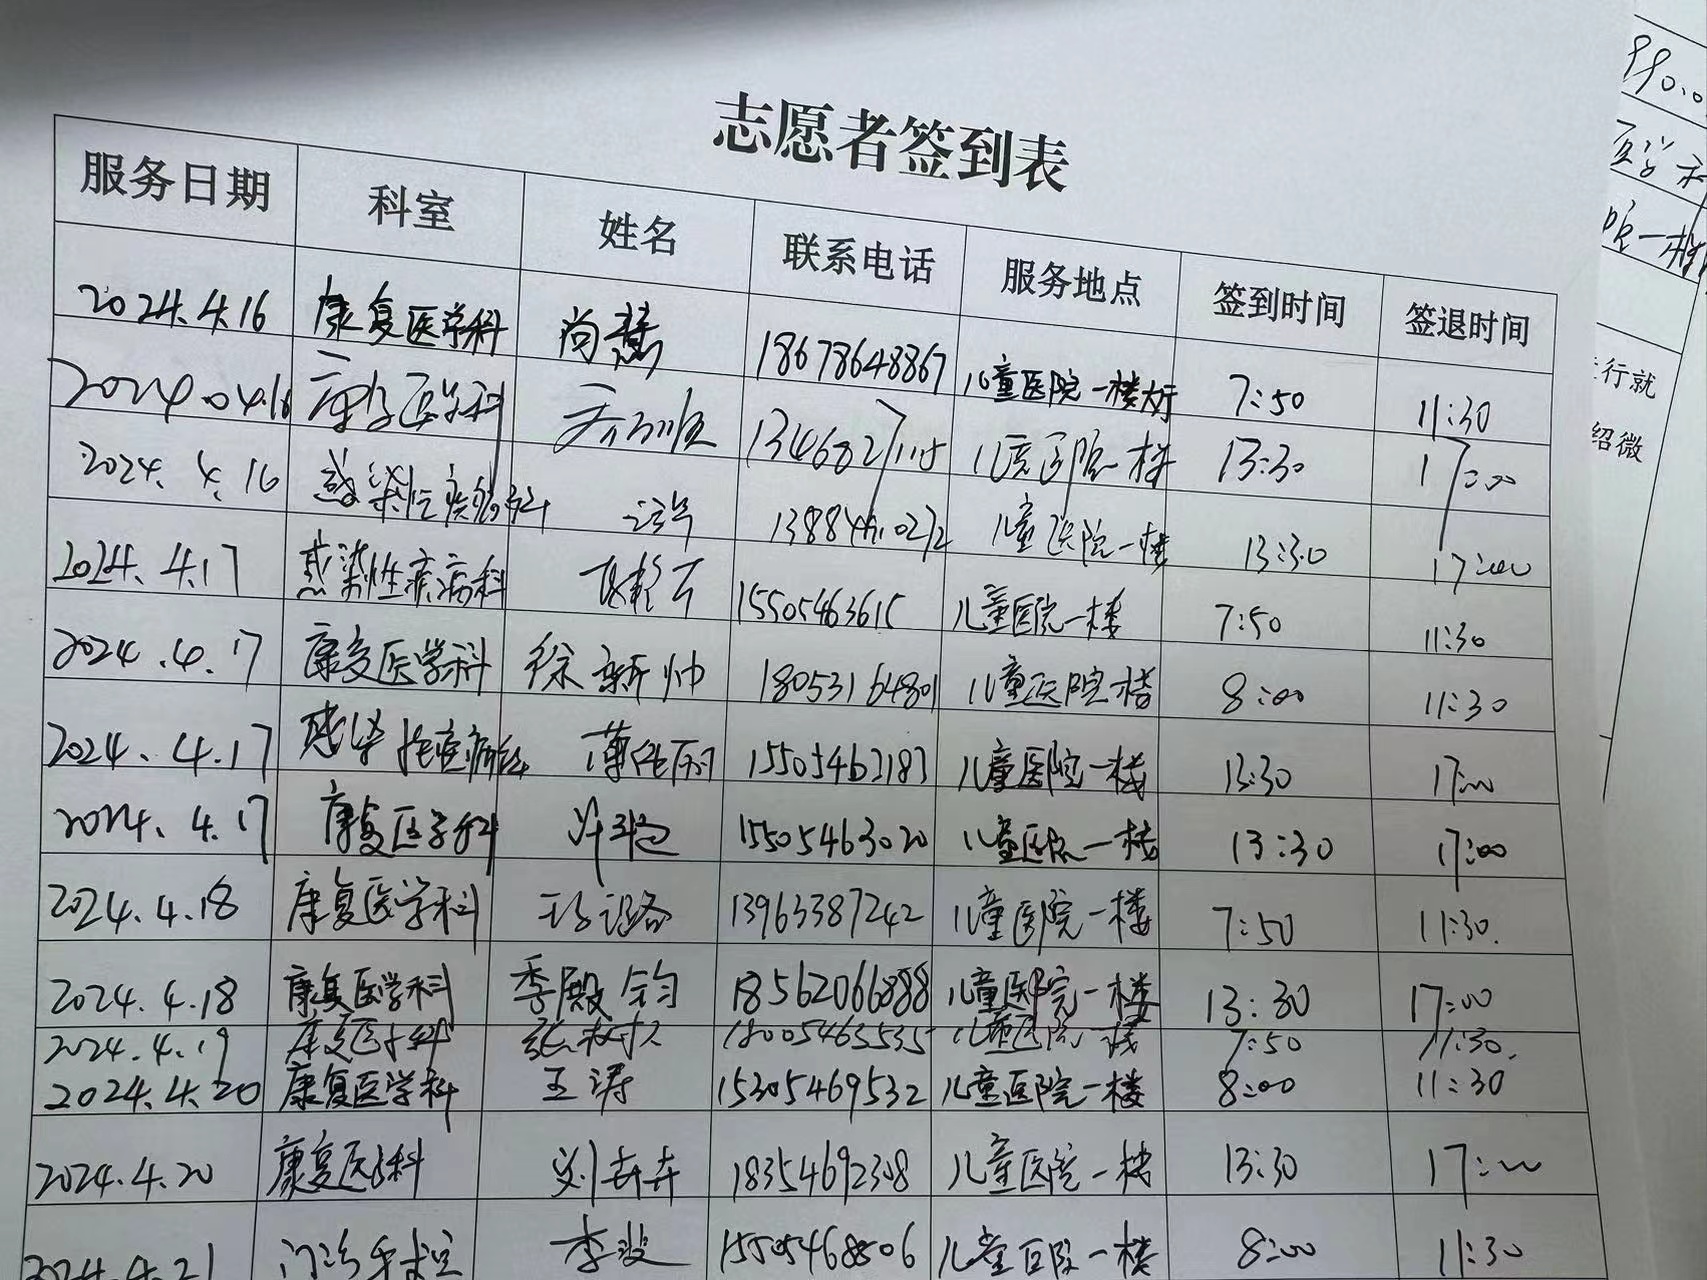 志愿者签到表
服务日期 科室 姓名 联系电话 服务地点 签到时间 签退时间
2024.4.16 康复医学科 尚慧 18678648867 儿童医院一楼大厅 7:50 11:30
2024.04.16 康复医学科 儿童医院一楼 13:30 17:00
2024.4.16 感染性疾病科 儿童医院一楼 13:30 17:00
2024.4.17 感染性疾病科 15505463615 儿童医院一楼 7:50 11:30
2024.4.17 康复医学科 徐新帅 18053164801 儿童医院一楼 8:00 11:30
2024.4.17 感染性疾病科 15505462187 儿童医院一楼 13:30 17:00
2024.4.17 康复医学科 15505463020 儿童医院一楼 13:30 17:00
2024.4.18 康复医学科 13963387242 儿童医院一楼 7:50 11:30.
2024.4.18 康复医学科 季殿钧 18562066888 儿童医院一楼 13:30 17:00
2024.4.19 康复医学科 18005465535 儿童医院一楼 7:50 11:30.
2024.4.20 康复医学科 王涛 15305469532 儿童医院一楼 8:00 11:30
2024.4.20 康复医学科 刘卉卉 18354692308 儿童医院一楼 13:30 17:00
2024.4.21 门诊手术室 李波 15505468506 儿童医院一楼 8:00 11:30
990.0
医学科
院一楼
行就
绍微